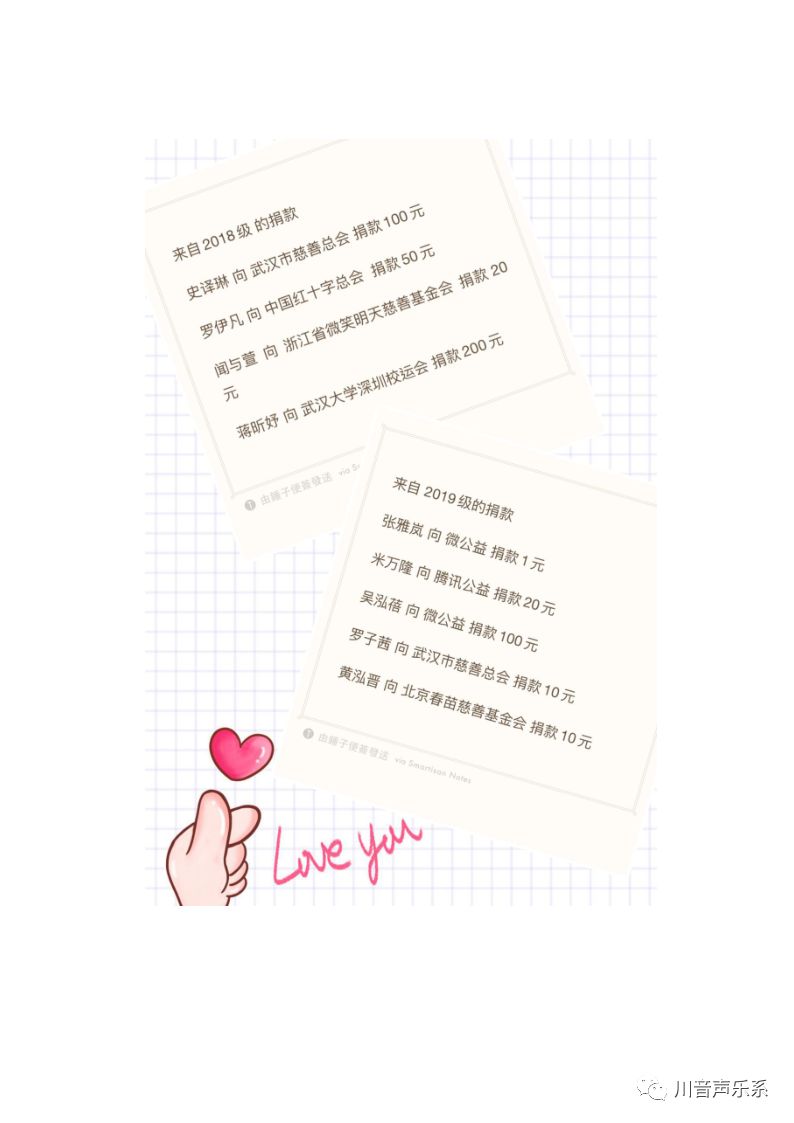 来自 2018 级 的捐款
史译琳 向 武汉市慈善总会 捐款 100 元
罗伊凡 向 中国红十字总会 捐款 50 元
闻与萱 向 浙江省微笑明天慈善基金会 捐款 20
元
蒋昕妤 向 武汉大学深圳校运会 捐款 200 元
由锤子便签發送 via Sm
来自 2019 级的捐款
张雅岚 向 微公益 捐款 1 元
米万隆 向 腾讯公益 捐款 20 元
吴泓蓓 向 微公益 捐款 100 元
罗子茜 向 武汉市慈善总会 捐款 10 元
黄泓晋 向 北京春苗慈善基金会 捐款 10 元
由錘子便簽發送 via Smartisan Notes
Love you
川音声乐系